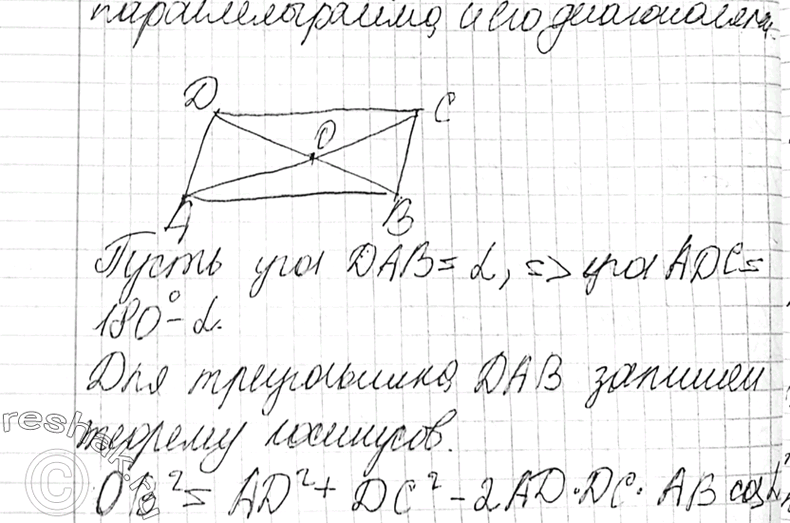 параллелограмма и его диагоналями.
D
C
O
A
B
Пусть угол DAB = α, => угол ADC =
180° - α.
Для треугольника DAB запишем
теорему косинусов.
reshak.ru
©
= AD² + DC² - 2AD·DC· AB cos